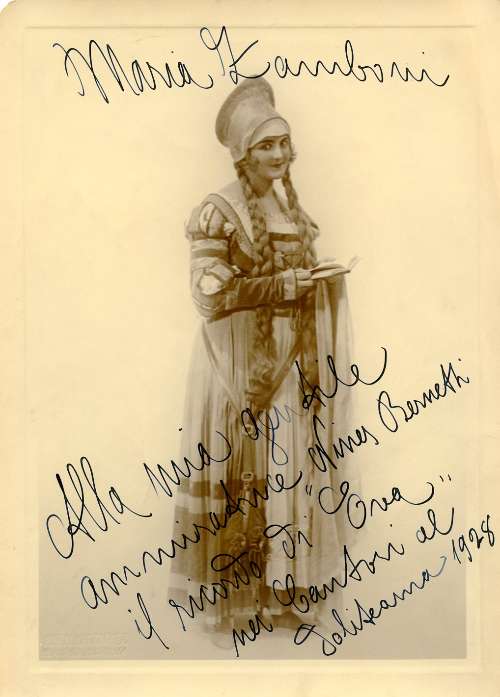 Maria Zamboni
Alla mia gentile
ammiratrice Wines Bernetti
il ricordo di "Eva"
nei Cantori al
Politeama 1928